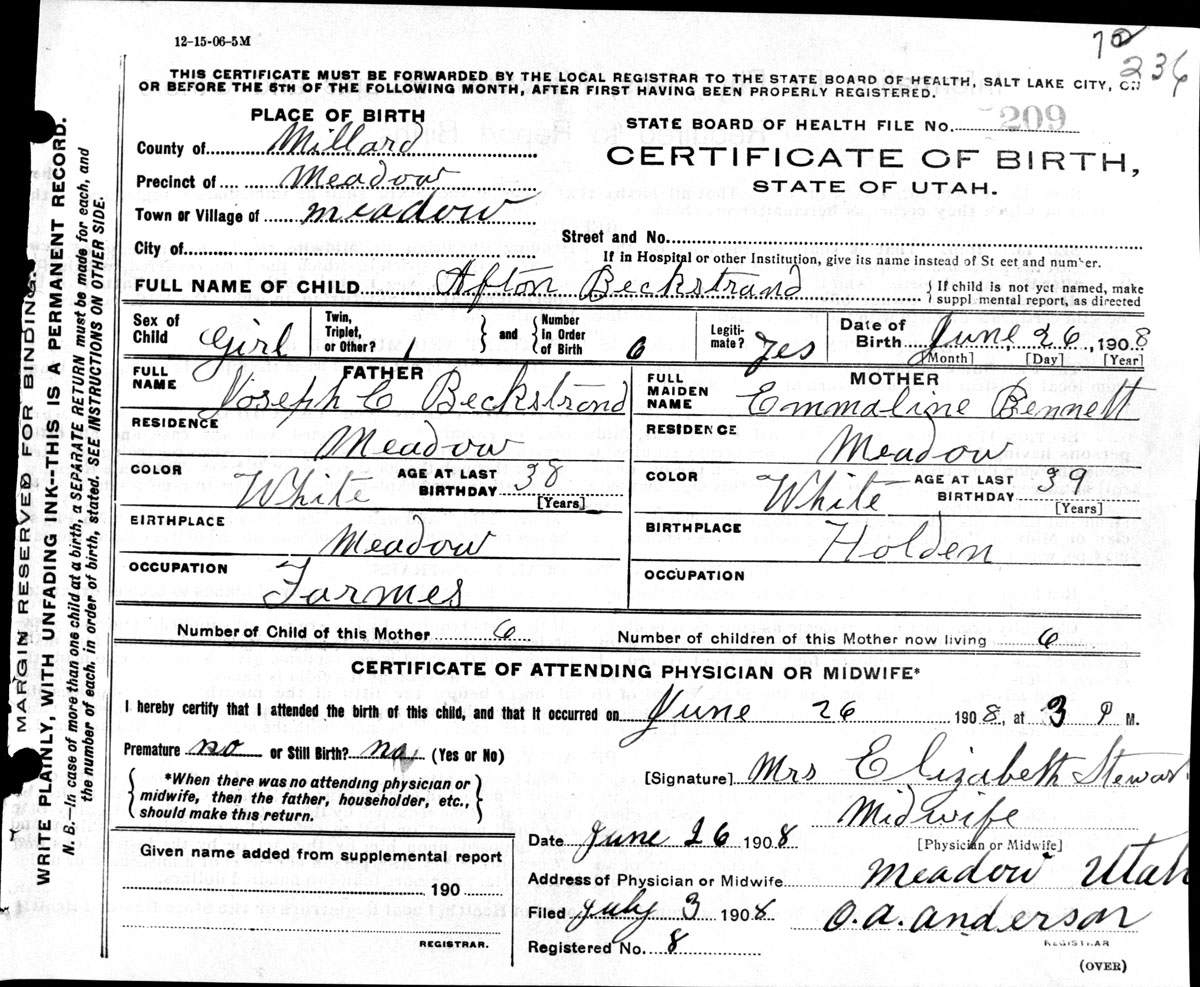 12-15-06-5M
70
236
THIS CERTIFICATE MUST BE FORWARDED BY THE LOCAL REGISTRAR TO THE STATE BOARD OF HEALTH, SALT LAKE CITY, ON
OR BEFORE THE 5TH OF THE FOLLOWING MONTH, AFTER FIRST HAVING BEEN PROPERLY REGISTERED.
PLACE OF BIRTH
County of Millard
Precinct of Meadow
Town or Village of meadow
City of
STATE BOARD OF HEALTH FILE No. 209
CERTIFICATE OF BIRTH,
STATE OF UTAH.
Street and No.
If in Hospital or other Institution, give its name instead of St eet and number.
FULL NAME OF CHILD Afton Beckstrand { If child is not yet named, make
suppl mental report, as directed
Sex of Child Girl Twin, Triplet, or Other? 1 } and { Number in Order of Birth 6 Legiti-mate? Yes Date of Birth June 26, 1908
[Month] [Day] [Year]
FATHER
FULL NAME Joseph C Beckstrand
RESIDENCE Meadow
COLOR White AGE AT LAST BIRTHDAY 38
[Years]
BIRTHPLACE Meadow
OCCUPATION Farmes
MOTHER
FULL MAIDEN NAME Emmaline Bennett
RESIDENCE Meadow
COLOR White AGE AT LAST BIRTHDAY 39
[Years]
BIRTHPLACE Holden
OCCUPATION
Number of Child of this Mother 6 Number of children of this Mother now living 6
CERTIFICATE OF ATTENDING PHYSICIAN OR MIDWIFE*
I hereby certify that I attended the birth of this child, and that it occurred on June 26 1908, at 3 P M.
Premature no or Still Birth? no (Yes or No)
{ *When there was no attending physician or
midwife, then the father, householder, etc.,
should make this return. }
[Signature] Mrs Elizabeth Stewar
Midwife
[Physician or Midwife]
Date June 26 1908
Address of Physician or Midwife Meadow Utah
Filed July 3 1908 O. A. Anderson
REGISTRAR
Registered No. 8
(OVER)
Given name added from supplemental report
190
REGISTRAR.
MARGIN RESERVED FOR BINDING.
WRITE PLAINLY, WITH UNFADING INK--THIS IS A PERMANENT RECORD.
N. B.—In case of more than one child at a birth, a SEPARATE RETURN must be made for each, and
the number of each, in order of birth, stated. SEE INSTRUCTIONS ON OTHER SIDE.